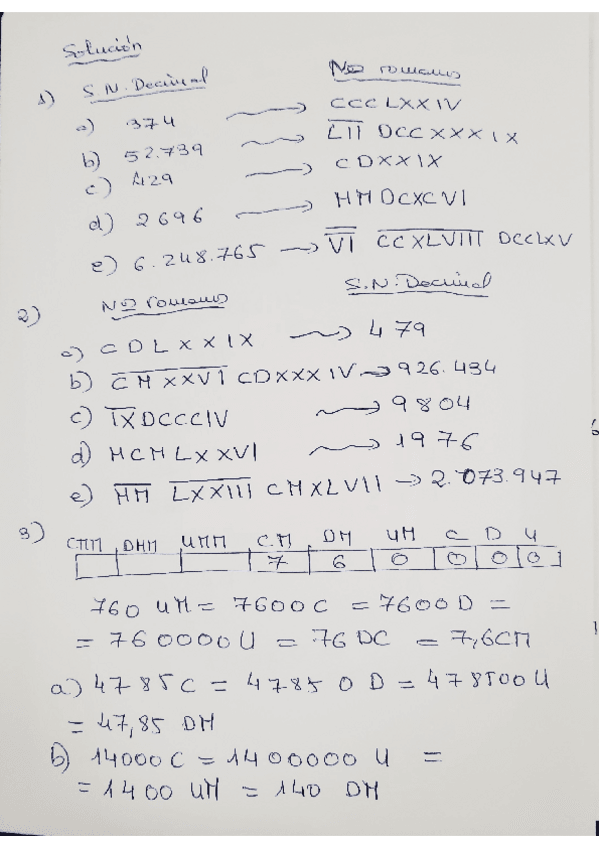 Solución
1) S.N. Decimal Nos romanos
a) 374 → CCCLXXIV
b) 52.739 → L̅I̅I̅ DCCXXXIX
c) 429 → CDXXIX
d) 2696 → MMDCXCVI
e) 6.248.765 → V̿I̿ C̅C̅X̅L̅V̅I̅I̅I̅ DCCLXV
2) Nos romanos S.N. Decimal
a) CDLXXIX → 479
b) C̅M̅X̅X̅V̅I̅ CDXXXIV → 926.434
c) I̅X̅DCCCIV → 9804
d) MCMLXXVI → 1976
e) M̅M̅ L̅X̅X̅I̅I̅I̅ CMXLVII → 2.073.947
3) CMM DMM UMM C.M DM UM C D U
7 6 0 0 0 0
760 UM = 7600C = 7600D =
= 760000U = 76 DC = 7,6CM
a) 4785C = 47850D = 478500U
= 47,85 DM
b) 14000C = 1400000 U =
= 1400 UM = 140 DM